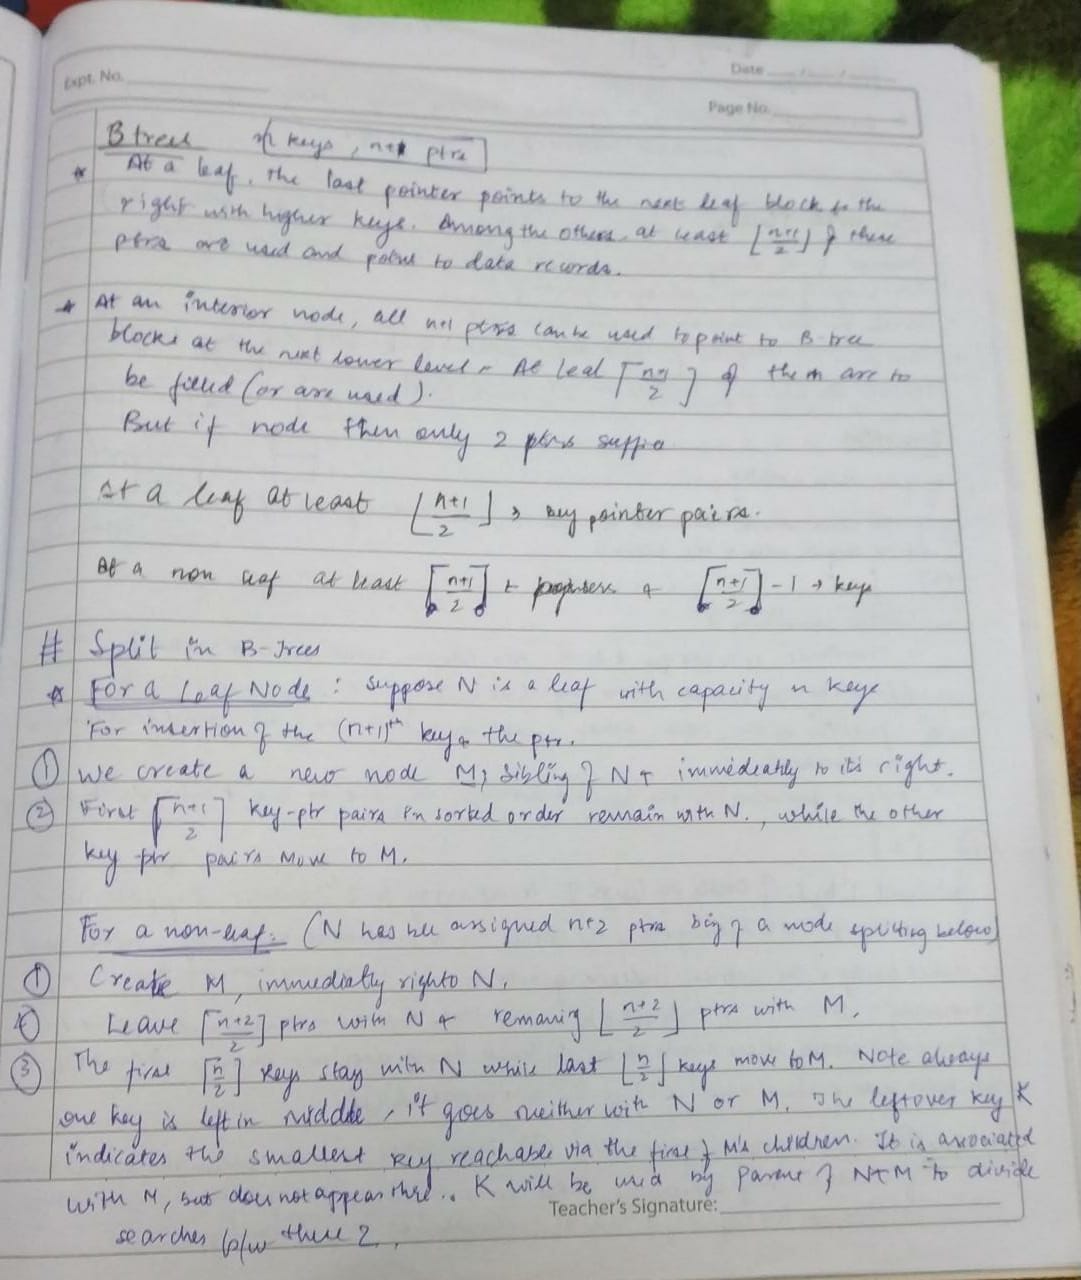 Expt. No.
Date
Page No.
B trees n keys, n+1 ptrs
* At a leaf, the last pointer points to the next leaf block to the
right with higher keys. Among the others, at least ⌊n+1/2⌋ of these
ptrs are used and point to data records.
* At an interior node, all n+1 ptrs can be used to point to B-tree
blocks at the next lower level. At leas ⌈n+1/2⌉ of them are to
be filled (or are used).
But if node then only 2 ptrs suffice
At a leaf at least ⌊n+1/2⌋ → key pointer pairs.
At a non leaf at least ⌈n+1/2⌉ → pointers & ⌈n+1/2⌉ - 1 → keys
# Split in B-Trees
* For a Leaf Node : Suppose N is a leaf with capacity n keys
For insertion of the (n+1)th key & the ptr.
① We create a new node M, sibling of N & immediately to its right.
② First ⌈n+1/2⌉ key-ptr pairs in sorted order remain with N., while the other
key ptr pairs move to M.
For a non-leaf: (N has been assigned n+2 ptrs bcz of a node splitting below)
① Create M, immediatly right to N.
Leave ⌈n+2/2⌉ ptrs with N & remaning ⌊n+2/2⌋ ptrs with M.
③ The first ⌈n/2⌉ keys stay with N while last ⌊n/2⌋ keys move to M. Note always
one key is left in middle, it goes neither with N or M. The leftover key K
indicates the smallest key reachable via the first of M's children. It is associated
with M, but does not appear there.. K will be used by Parent of N & M to divide
searches b/w these 2.
Teacher's Signature: